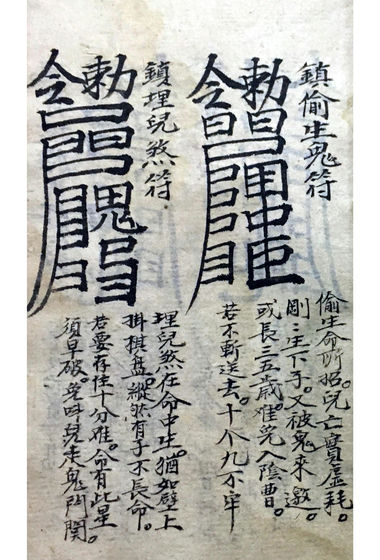 鎮偷生鬼符
勅令
偷生命所招。兒亡實虛耗。
剛々生下子。又被鬼來邀。
或長三五歲。难免入陰曹。
若不斬送去。十个九不牢
鎮埋兒煞符
勅令
鬼
埋兒煞在命中生。猶如壁上
掛棋盘。縱然有子不長命。
若要存住十分难。命有此星
須早破。免呌兒走鬼門関